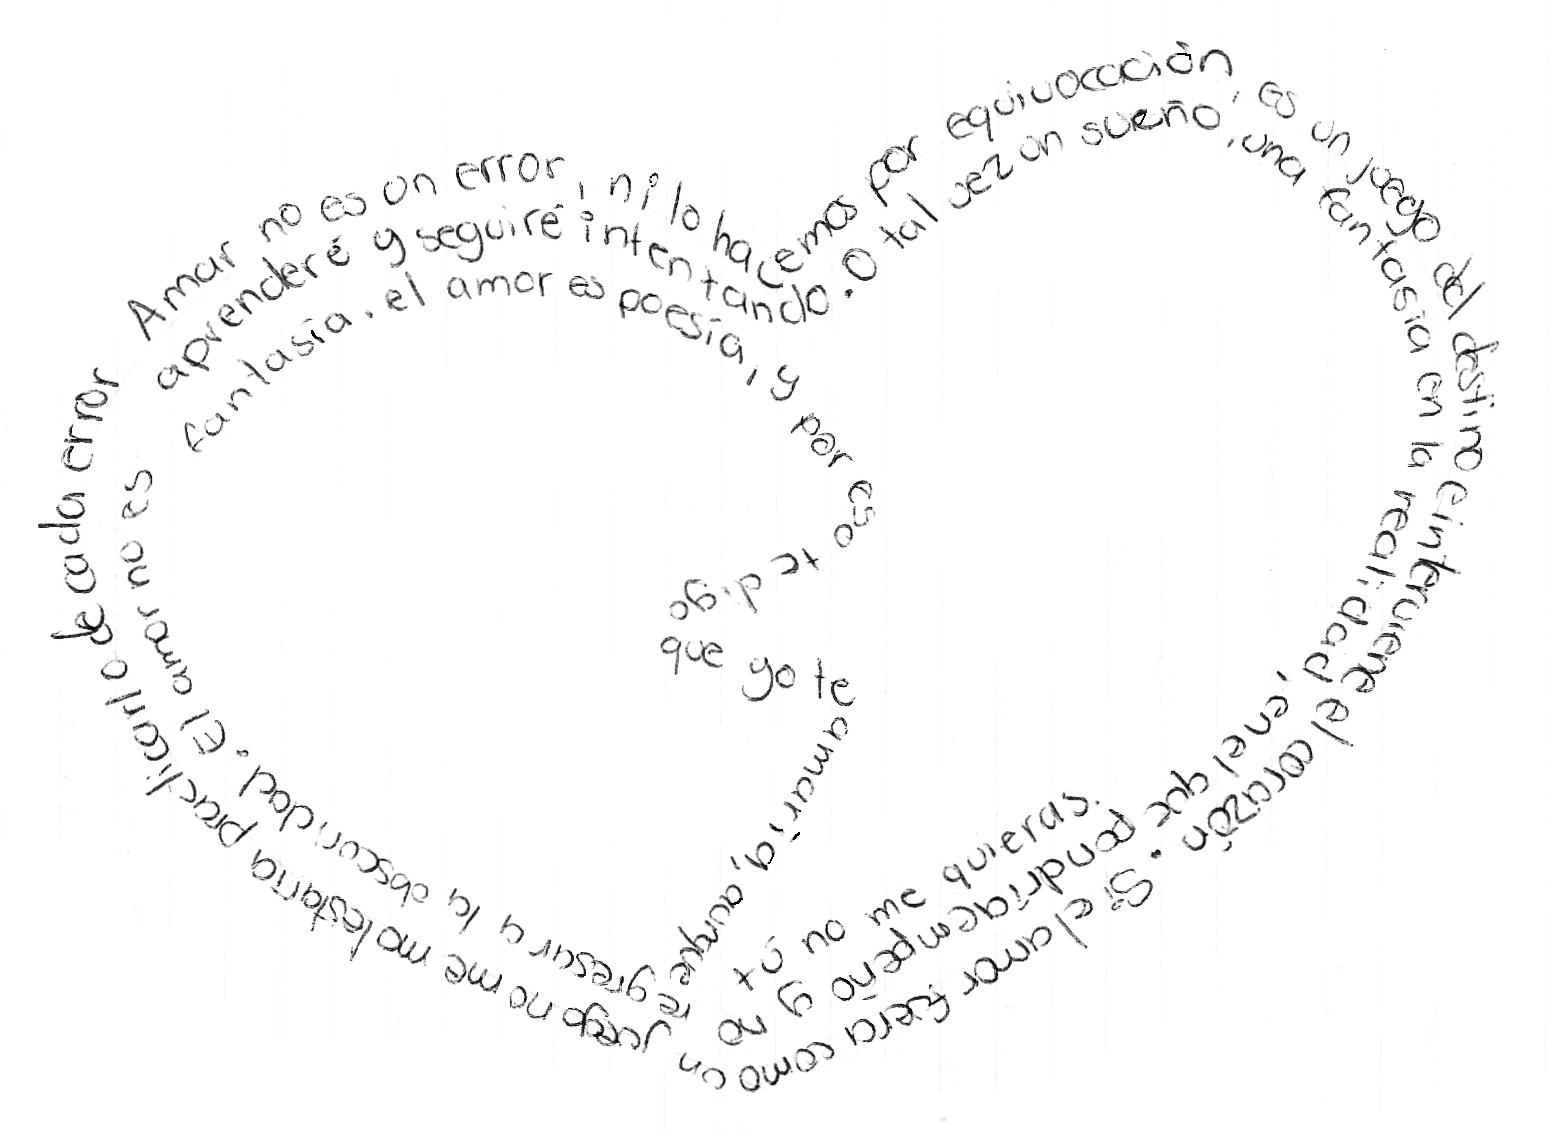 Amar no es un error, ni lo hacemos por equivocación, es un juego del destino e interviene el corazón. Si el amor fuera como un juego no me molestaría practicarlo de cada error
aprenderé y seguiré intentando. O tal vez un sueño, una fantasía en la realidad, en el que pondría empeño y no regresar a la obscuridad. El amor no es
fantasía, el amor es poesía, y por eso te digo
que yo te amaría, aunque tú no me quieras.